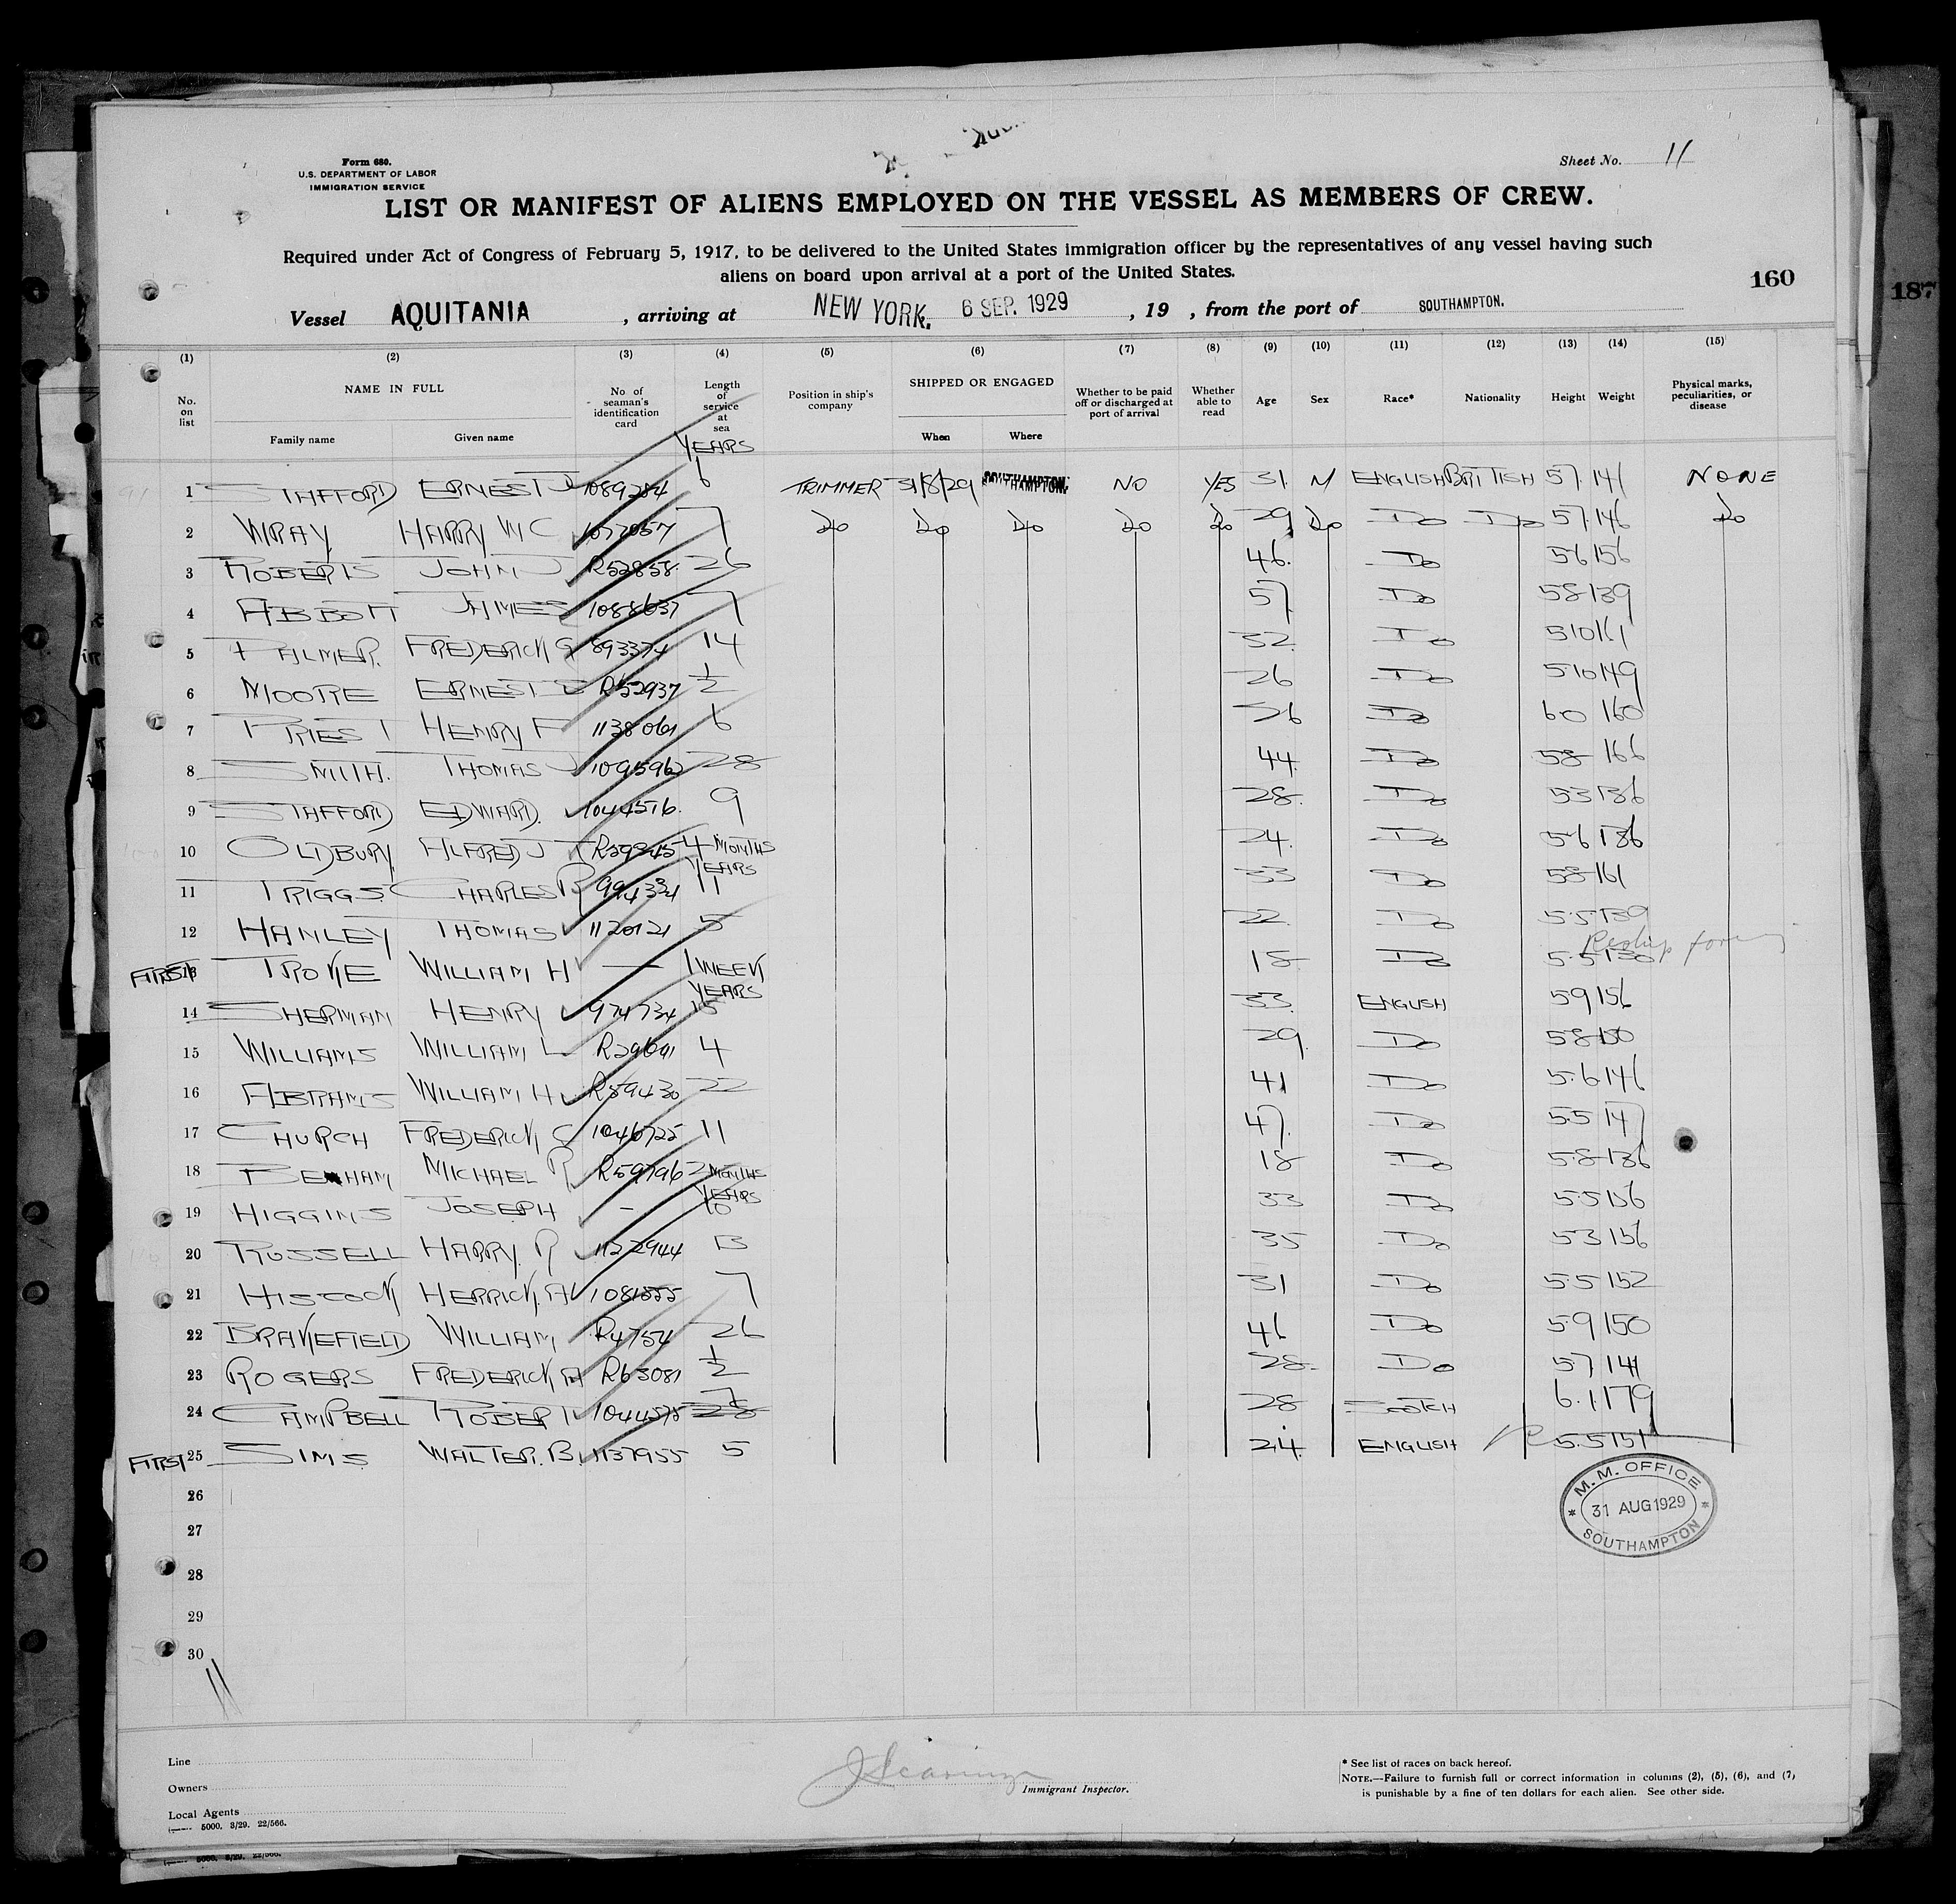 Form 680.
U.S. DEPARTMENT OF LABOR
IMMIGRATION SERVICE
Sheet No. 11
LIST OR MANIFEST OF ALIENS EMPLOYED ON THE VESSEL AS MEMBERS OF CREW.
Required under Act of Congress of February 5, 1917, to be delivered to the United States immigration officer by the representatives of any vessel having such
aliens on board upon arrival at a port of the United States.
160
187
Vessel AQUITANIA , arriving at NEW YORK. 6 SEP. 1929 , 19 , from the port of SOUTHAMPTON.
(1) (2) (3) (4) (5) (6) (7) (8) (9) (10) (11) (12) (13) (14) (15)
No. on list NAME IN FULL Family name Given name No of seaman's identification card Length of service at sea Position in ship's company SHIPPED OR ENGAGED When Where Whether to be paid off or discharged at port of arrival Whether able to read Age Sex Race* Nationality Height Weight Physical marks, peculiarities, or disease
YEARS
1 STAFFORD ERNEST J 1089284 6 TRIMMER 31/8/29 SOUTHAMPTON. NO YES 31 M ENGLISH BRITISH 57 141 NONE
2 WRAY HARRY W C 1077057 7 Do Do Do Do Do 29 Do Do Do 57 146 Do
3 ROBERTS JOHN J R52858 26 46 Do 56 156
4 ABBOTT JAMES 1088637 7 57 Do 58 139
5 PALMER. FREDERICK G 893374 14 32 Do 510 161
6 MOORE ERNEST R52937 1/2 26 Do 510 149
7 PRIEST HENRY F 1138061 6 26 Do 60 160
8 SMITH. THOMAS J 1095962 28 44 Do 58 166
9 STAFFORD EDWARD. 1044516. 9 28 Do 53 136
10 OLDBURY ALFRED J R29345 4 MONTHS 24. Do 56 136
YEARS
11 TRIGGS CHARLES R 994334 11 33 Do 58 161
12 HANLEY THOMAS 1120121 5 22 Do 5.5 139
FIRST 13 TROKE WILLIAM H — 1 WEEK 18 Do 5.5 130
YEARS
14 SHERMAN HENRY 974734 15 33. ENGLISH 59 156
15 WILLIAMS WILLIAM L R29691 4 29 Do 58 150
16 ABRAMS WILLIAM H R59430 22 41 Do 5.6 146
17 CHURCH FREDERICK C 1046725 11 47. Do 55 147
18 BENHAM MICHAEL R R59796 2 MONTHS 18 Do 5.8 136
YEARS
19 HIGGINS JOSEPH - 33 Do 5.5 156
20 RUSSELL HARRY. R 1122944 13 35 Do 53 156
21 HISCOCK HERRICK. A 1081555 7 31 Do 5.5 152
22 BRAKEFIELD WILLIAM R4754 26 46 Do 59 150
23 ROGERS FREDERICK A R63081 1/2 28 Do 57 141
24 CAMPBELL ROBERT 1044575 7 28 SCOTCH 6.1 179
FIRST 25 SIMS WALTER. B. 1137955 5 24. ENGLISH 5.5 151
26
27
28
29
30
M. M. OFFICE
31 AUG 1929
SOUTHAMPTON
Line
Owners
Local Agents
5000. 3/29. 22/566.
Immigrant Inspector.
* See list of races on back hereof.
NOTE.—Failure to furnish full or correct information in columns (2), (5), (6), and (7)
is punishable by a fine of ten dollars for each alien. See other side.
5000. 3/29. 22/566.